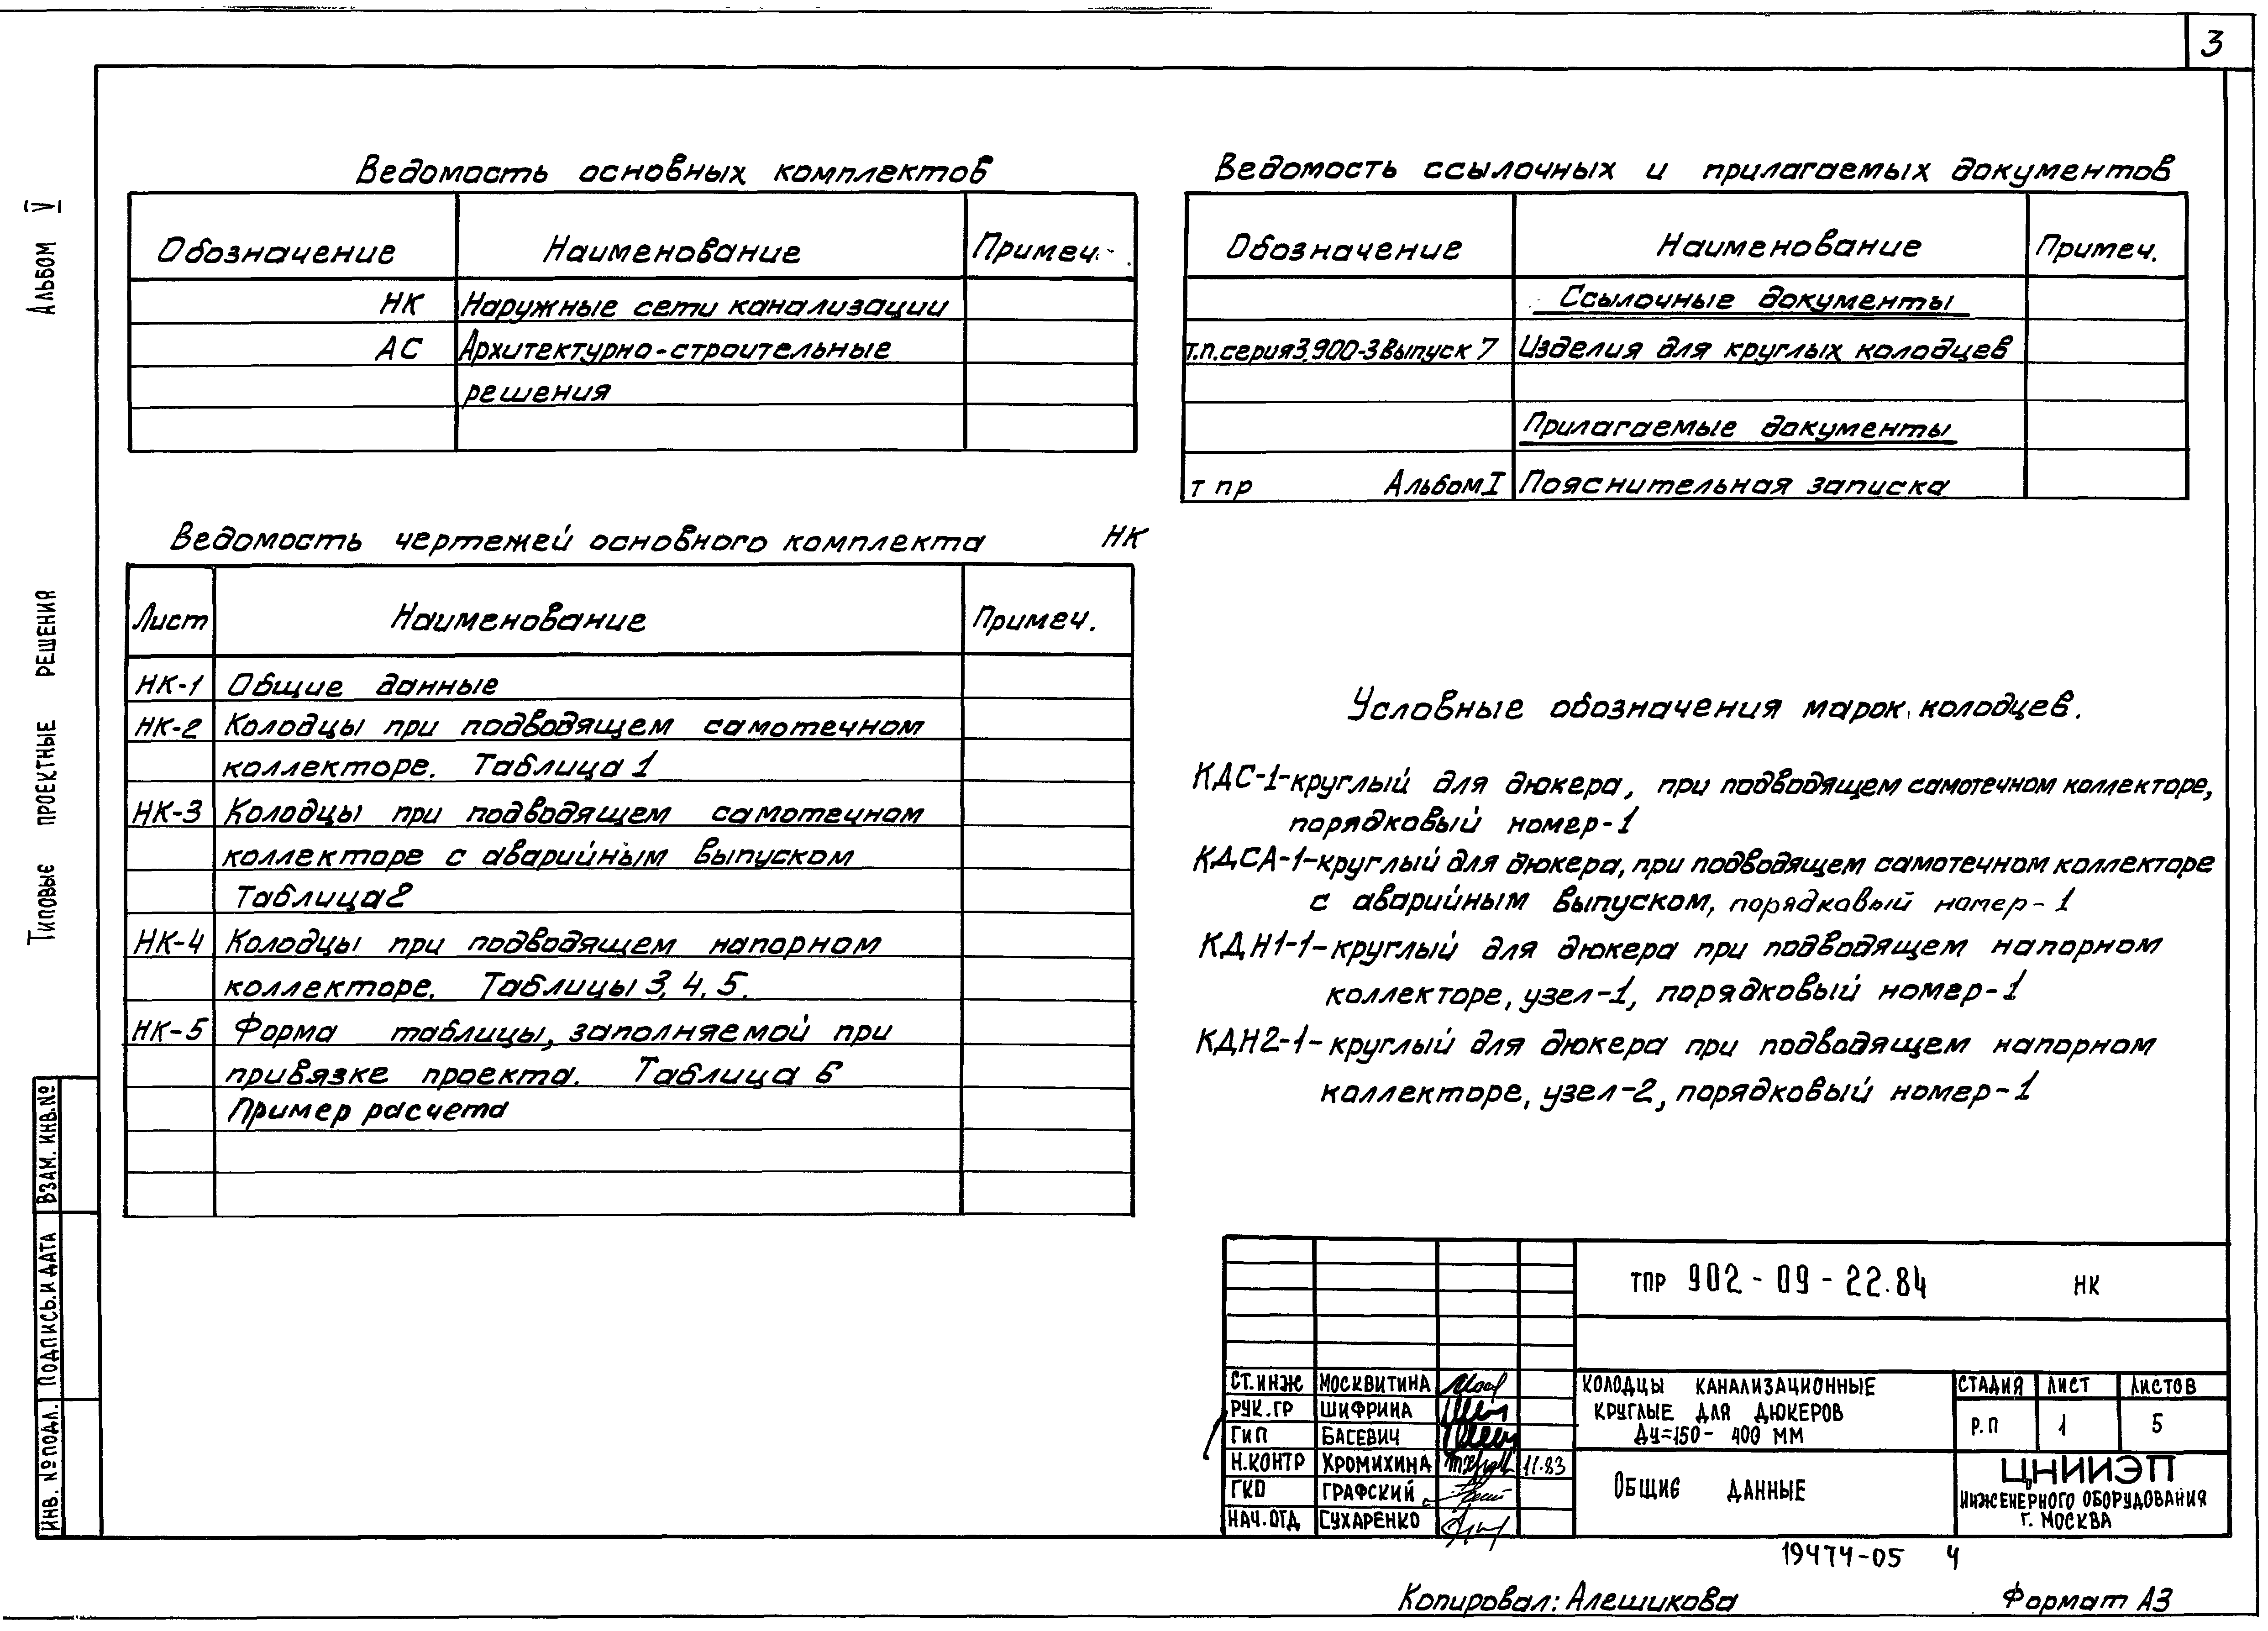 3
Альбом V
Типовые проектные решения
Ведомость основных комплектов
Обозначение Наименование Примеч.
НК Наружные сети канализации
АС Архитектурно-строительные
решения
Ведомость ссылочных и прилагаемых документов
Обозначение Наименование Примеч.
Ссылочные документы
т.п. серия 3.900-3 выпуск 7 Изделия для круглых колодцев
Прилагаемые документы
т пр Альбом I Пояснительная записка
Ведомость чертежей основного комплекта НК
Лист Наименование Примеч.
НК-1 Общие данные
НК-2 Колодцы при подводящем самотечном
коллекторе. Таблица 1
НК-3 Колодцы при подводящем самотечном
коллекторе с аварийным выпуском
Таблица 2
НК-4 Колодцы при подводящем напорном
коллекторе. Таблицы 3, 4, 5.
НК-5 Форма таблицы, заполняемой при
привязке проекта. Таблица 6
Пример расчета
Условные обозначения марок колодцев.
КДС-1-круглый для дюкера, при подводящем самотечном коллекторе,
порядковый номер-1
КДСА-1-круглый для дюкера, при подводящем самотечном коллекторе
с аварийным выпуском, порядковый номер-1
КДН1-1-круглый для дюкера при подводящем напорном
коллекторе, узел-1, порядковый номер-1
КДН2-1-круглый для дюкера при подводящем напорном
коллекторе, узел-2, порядковый номер-1
ВЗАМ. ИНВ.№
ПОДПИСЬ И ДАТА
ИНВ. № ПОДЛ.
ТПР 902-09-22.84 НК
СТ.ИНЖ МОСКВИТИНА
РУК.ГР ШИФРИНА
ГИП БАСЕВИЧ
Н.КОНТР ХРОМИХИНА 11.83
ГКП ГРАФСКИЙ
НАЧ.ОТД СУХАРЕНКО
КОЛОДЦЫ КАНАЛИЗАЦИОННЫЕ
КРУГЛЫЕ ДЛЯ ДЮКЕРОВ
Ду=150-400 ММ
СТАДИЯ ЛИСТ ЛИСТОВ
Р.П 1 5
ОБЩИЕ ДАННЫЕ
ЦНИИЭП
ИНЖЕНЕРНОГО ОБОРУДОВАНИЯ
Г. МОСКВА
19474-05 4
Копировал: Алешикова Формат А3